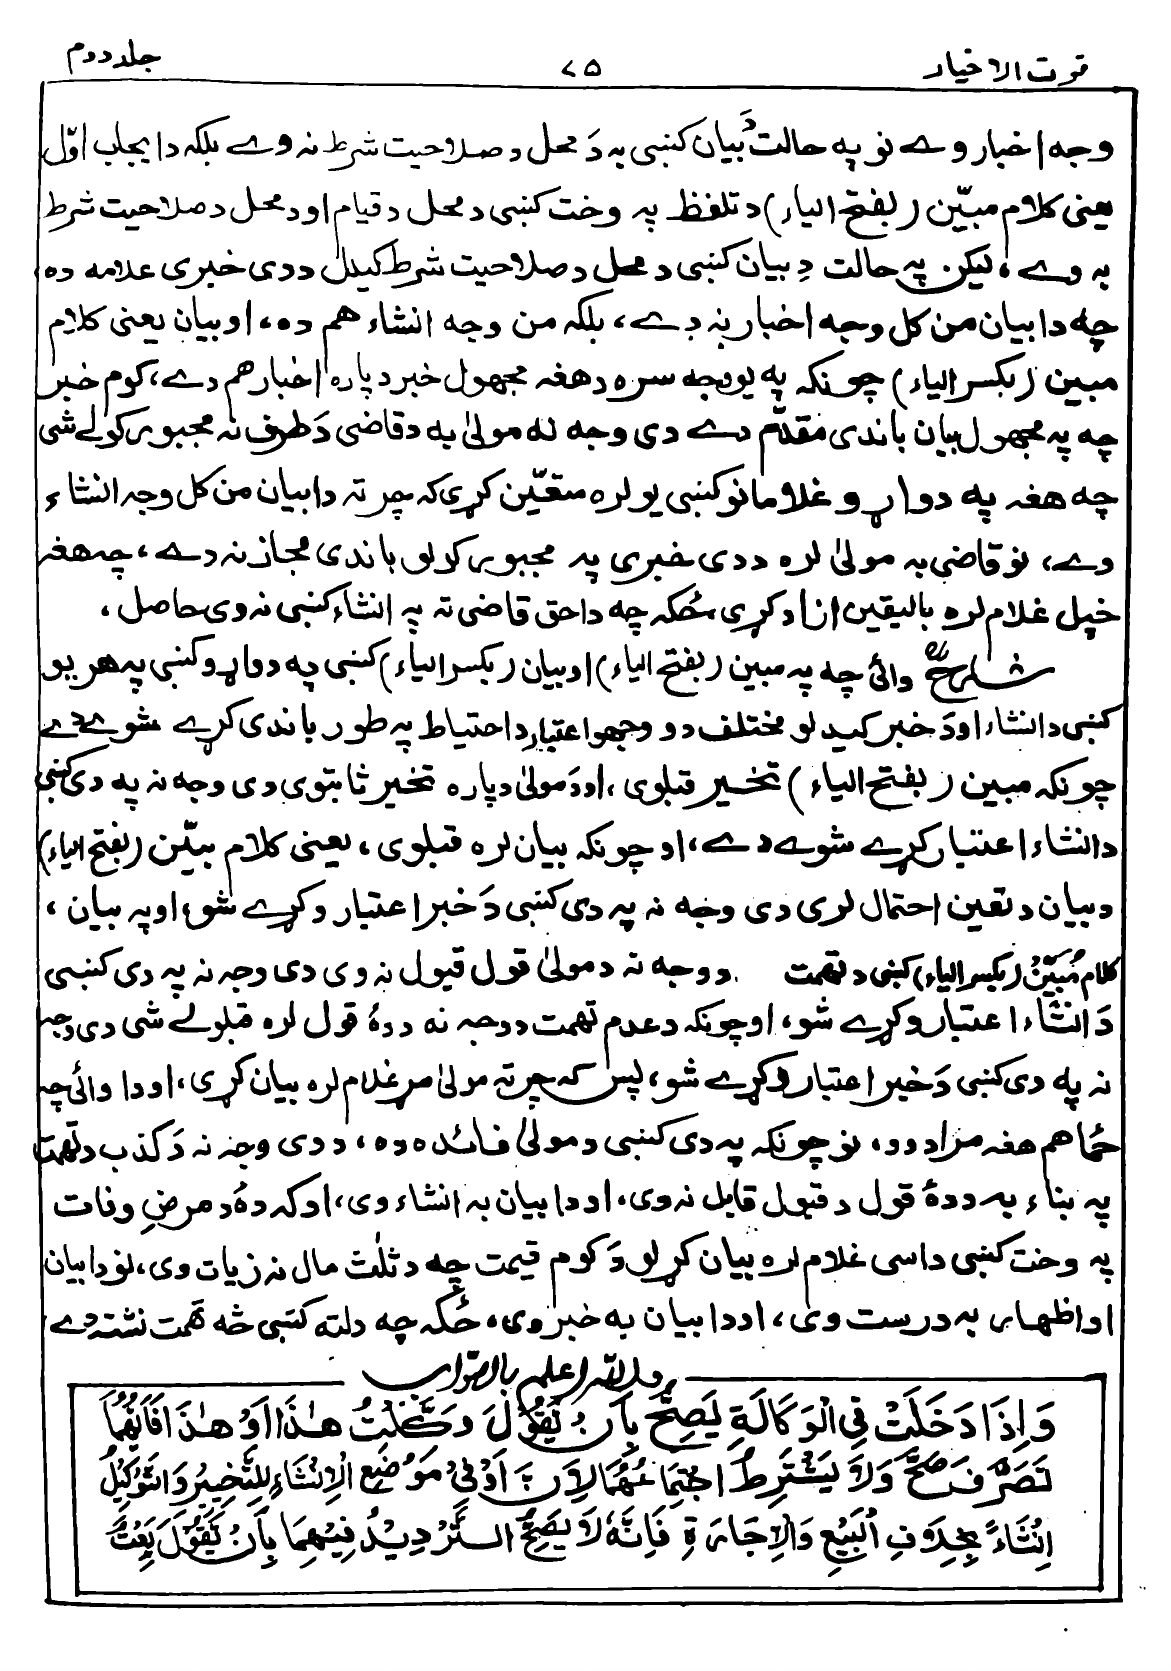 قرت الاخیار ۷۵ جلد دوم
وجه اخبار وے نو په حالت دَ بیان کښی به دَ محل د صلاحیت شرط نه وے بلکه د ایجاب اوّل
یعنی کلام مبیّن (بفتح الیاء) د تلفظ په وخت کښی د محل د قیام او د محل د صلاحیت شرط
به وے، لیکن په حالت دِ بیان کښی د محل د صلاحیت شرط کیدل د دی خبری علامه ده
چه دا بیان من کل وجه اخبار نه دے، بلکه من وجه انشاء هم ده، او بیان یعنی کلام
مبین (بکسر الیاء) چونکه په یو وجه سره د هغه مجهول خبر د پاره اخبار هم دے، کوم خبر
چه په مجهول بیان باندی مقدّم دے دی وجه نه مولیٰ به د قاضی دَ طرف نه مجبور کولے شی
چه هغه په دواړو غلامانو کښی یو لره متعیّن کړی که چرته دا بیان من کل وجه انشاء
وے، نو قاضی به مولیٰ لره د دی خبری په مجبور کولو باندی مجاز نه دے، چه هغه
خپل غلام لره بالیقین ازاد کړی، ځکه چه دا حق قاضی ته په انشاء کښی نه وی حاصل،
شارحؒ وائی چه په مبین (بفتح الیاء) او بیان (بکسر الیاء) کښی په دواړو کښی په هر یو
کښی د انشاء او دَ خبر کیدلو مختلف دوو وجهو اعتبار د احتیاط په طور باندی کړے شوے دے
چونکه مبین (بفتح الیاء) تخییر قبلوی، او دَ مولیٰ د پاره تخییر ثابتوی دی وجه نه په دی کښی
د انشاء اعتبار کړے شوے دے، او چونکه بیان لره قبلوی، یعنی کلام مبیّن (بفتح الیاء)
د بیان د تعین احتمال لری دی وجه نه په دی کښی دَ خبر اعتبار وکړے شو، او په بیان،
کلام مُبَیِّنْ (بکسر الیاء) کښی د تهمت د وجه نه د مولیٰ قول قبول نه وی دی وجه نه په دی کښی
دَ انشاء اعتبار وکړے شو، او چونکه د عدم تهمت د وجه نه د دهٔ قول لره قبلولے شی دی وجه
نه په دی کښی دَ خبر اعتبار وکړے شو، پس که چرته مولیٰ مړ غلام لره بیان کړی، او دا وائی چه
ځما هم هغه مراد وو، نو چونکه په دی کښی د مولیٰ فائده ده، د دی وجه نه دَ کذب د تهمت
په بناء به د دهٔ قول د قبول قابل نه وی، او دا بیان به انشاء وی، او که دهٔ د مرضِ وفات
په وخت کښی داسی غلام لره بیان کړلو دَ کوم قیمت چه د ثلٰث مال نه زیات وی، نو دا بیان
او اظهار به درست وی، او دا بیان به خبر وی، ځکه چه دلته کښی څه تهمت نشته دے،
والله اعلم بالصّواب
وَاِذَا دَخَلَتْ فِی الْوَکَالَةِ یَصِحُّ بِاَنْ یَّقُوْلَ وَکَّلْتُ هٰذَا اَوْ هٰذَا فَاَیُّهُمَا
تَصَرَّفَ صَحَّ وَلَا یَشْتَرِطُ اجْتِمَاعُهُمَا لِاَنَّ اَوْ فِیْ مَوْضِعِ الْاِنْشَاءِ لِلتَّخْیِیْرِ وَالتَّوْکِیْلُ
اِنْشَاءٌ بِخِلَافِ الْبَیْعِ وَالْاِجَارَةِ فَاِنَّهٗ لَا یَصِحُّ التَّرْدِیْدُ فِیْهِمَا بِاَنْ یَّقُوْلَ بِعْتُ